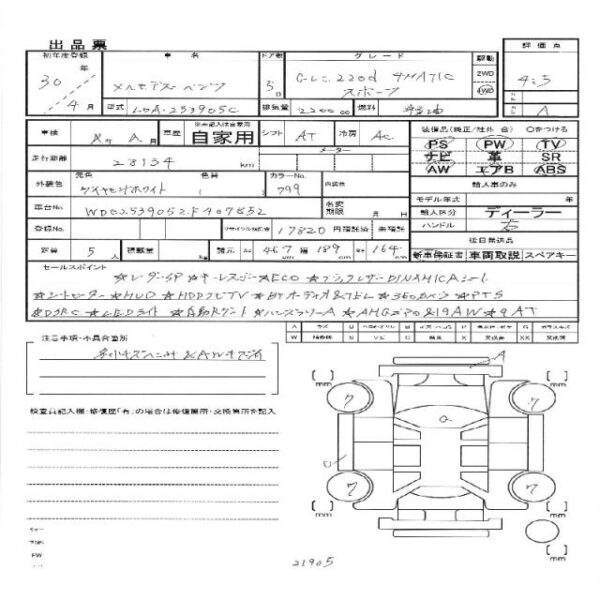 出品票
初年度登録 車名 ドア数 グレード 駆動 評価点
30年 メルセデスベンツ 5D GLC.220d 4MATIC 2WD 4.5
4月 スポーツ 4WD
型式 LDA-253905C 排気量 2200 cc 燃料 軽油 A
車検 年 月 車歴 自家用 シフト AT 冷房 AC
装備品(純正/社外 含) ○をつける
PS PW TV
走行距離 28134 km メーター
ナビ 革 SR
AW エアB ABS
外装色 元色 ダイヤモンドホワイト 色替 カラーNo. 799 内装色
輸入車のみ
モデル年式 年
車台No. WDC2539052F407832 名変期限 月 日
輸入区分 ディーラー
ハンドル 右
登録No. リサイクル預託金 17820 円預託済 未預託
後日発送品
定員 5人 積載量 kg 諸元 長 467 cm 幅 189 cm 高 164 cm
新車保証書 車両取説 スペアキー
セールスポイント
★レーダーSP ★キーレスゴー★ECO★ブラックレザーDINAMICAシート
★シートヒーター★HUD★HDDナビTV★BTオーディオ&TEL★360°カメラ★PTS
★DSRC★LEDライト★自動Rゲート★ハンズフリーA★AMGエアロ&19AW★9AT
注意事項・不具合箇所
検査員記入欄・修復歴「有」の場合は修復箇所・交換箇所を記入
A
7 7
G
U
7 7
[ ] mm [ ] mm
[ ] mm [ ] mm
21905